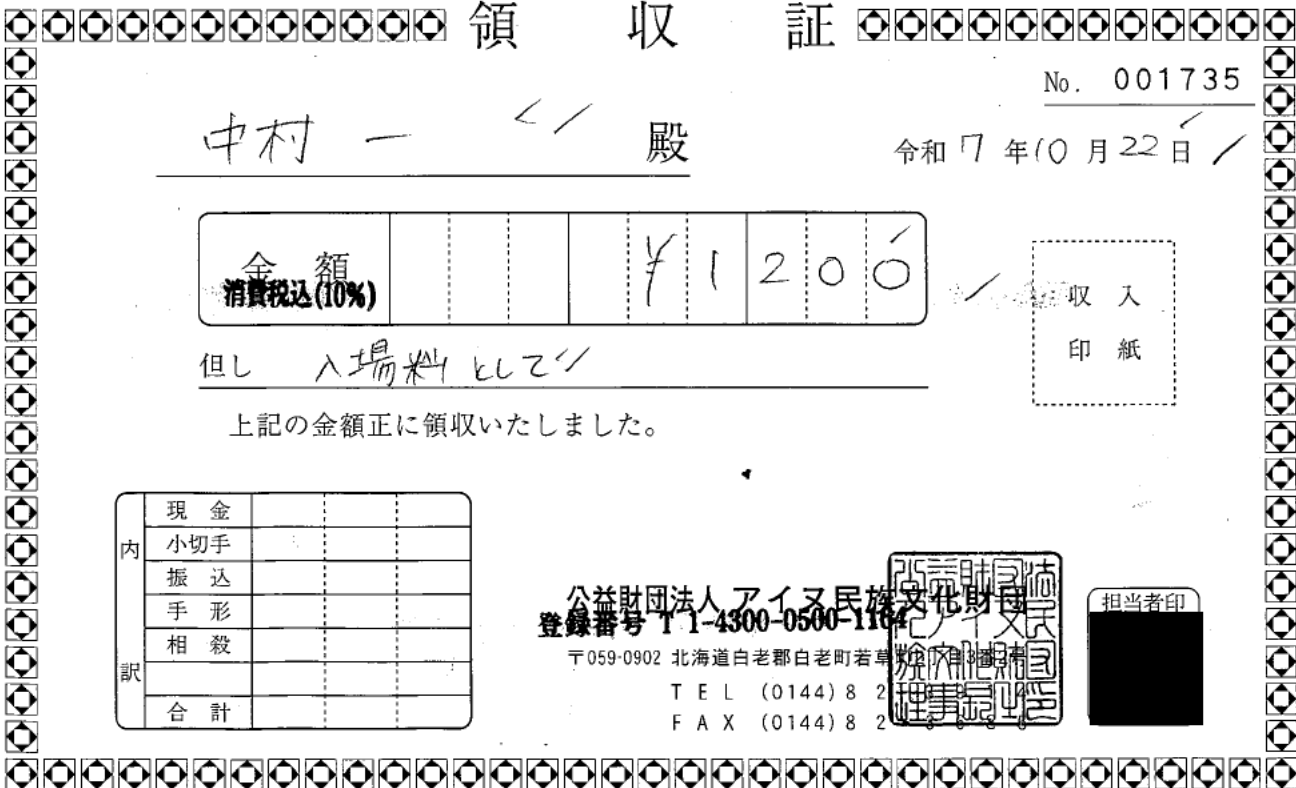 領収証
No. 001735
中村 一 殿
令和 7 年 10 月 22 日
金額 ¥1200
消費税込(10%)
収入
印紙
但し 入場料として
上記の金額正に領収いたしました。
内訳
現金
小切手
振込
手形
相殺
合計
公益財団法人 アイヌ民族文化財団
登録番号 T 1-4300-0500-1164
〒059-0902 北海道白老郡白老町若草
TEL (0144) 8 2
FAX (0144) 8 2
担当者印